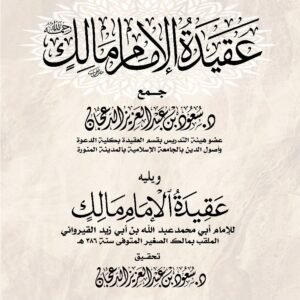 عقيدة الإمام مالك
رحمه الله
جمع
د. سعود بن عبد العزيز الدعجان
عضو هيئة التدريس بقسم العقيدة بكلية الدعوة
وأصول الدين بالجامعة الإسلامية بالمدينة المنورة
ويليه
عقيدة الإمام مالك
للإمام أبي محمد عبد الله بن أبي زيد القيرواني
الملقب بمالك الصغير المتوفى سنة ٣٨٦ هـ
تحقيق
د. سعود بن عبد العزيز الدعجان